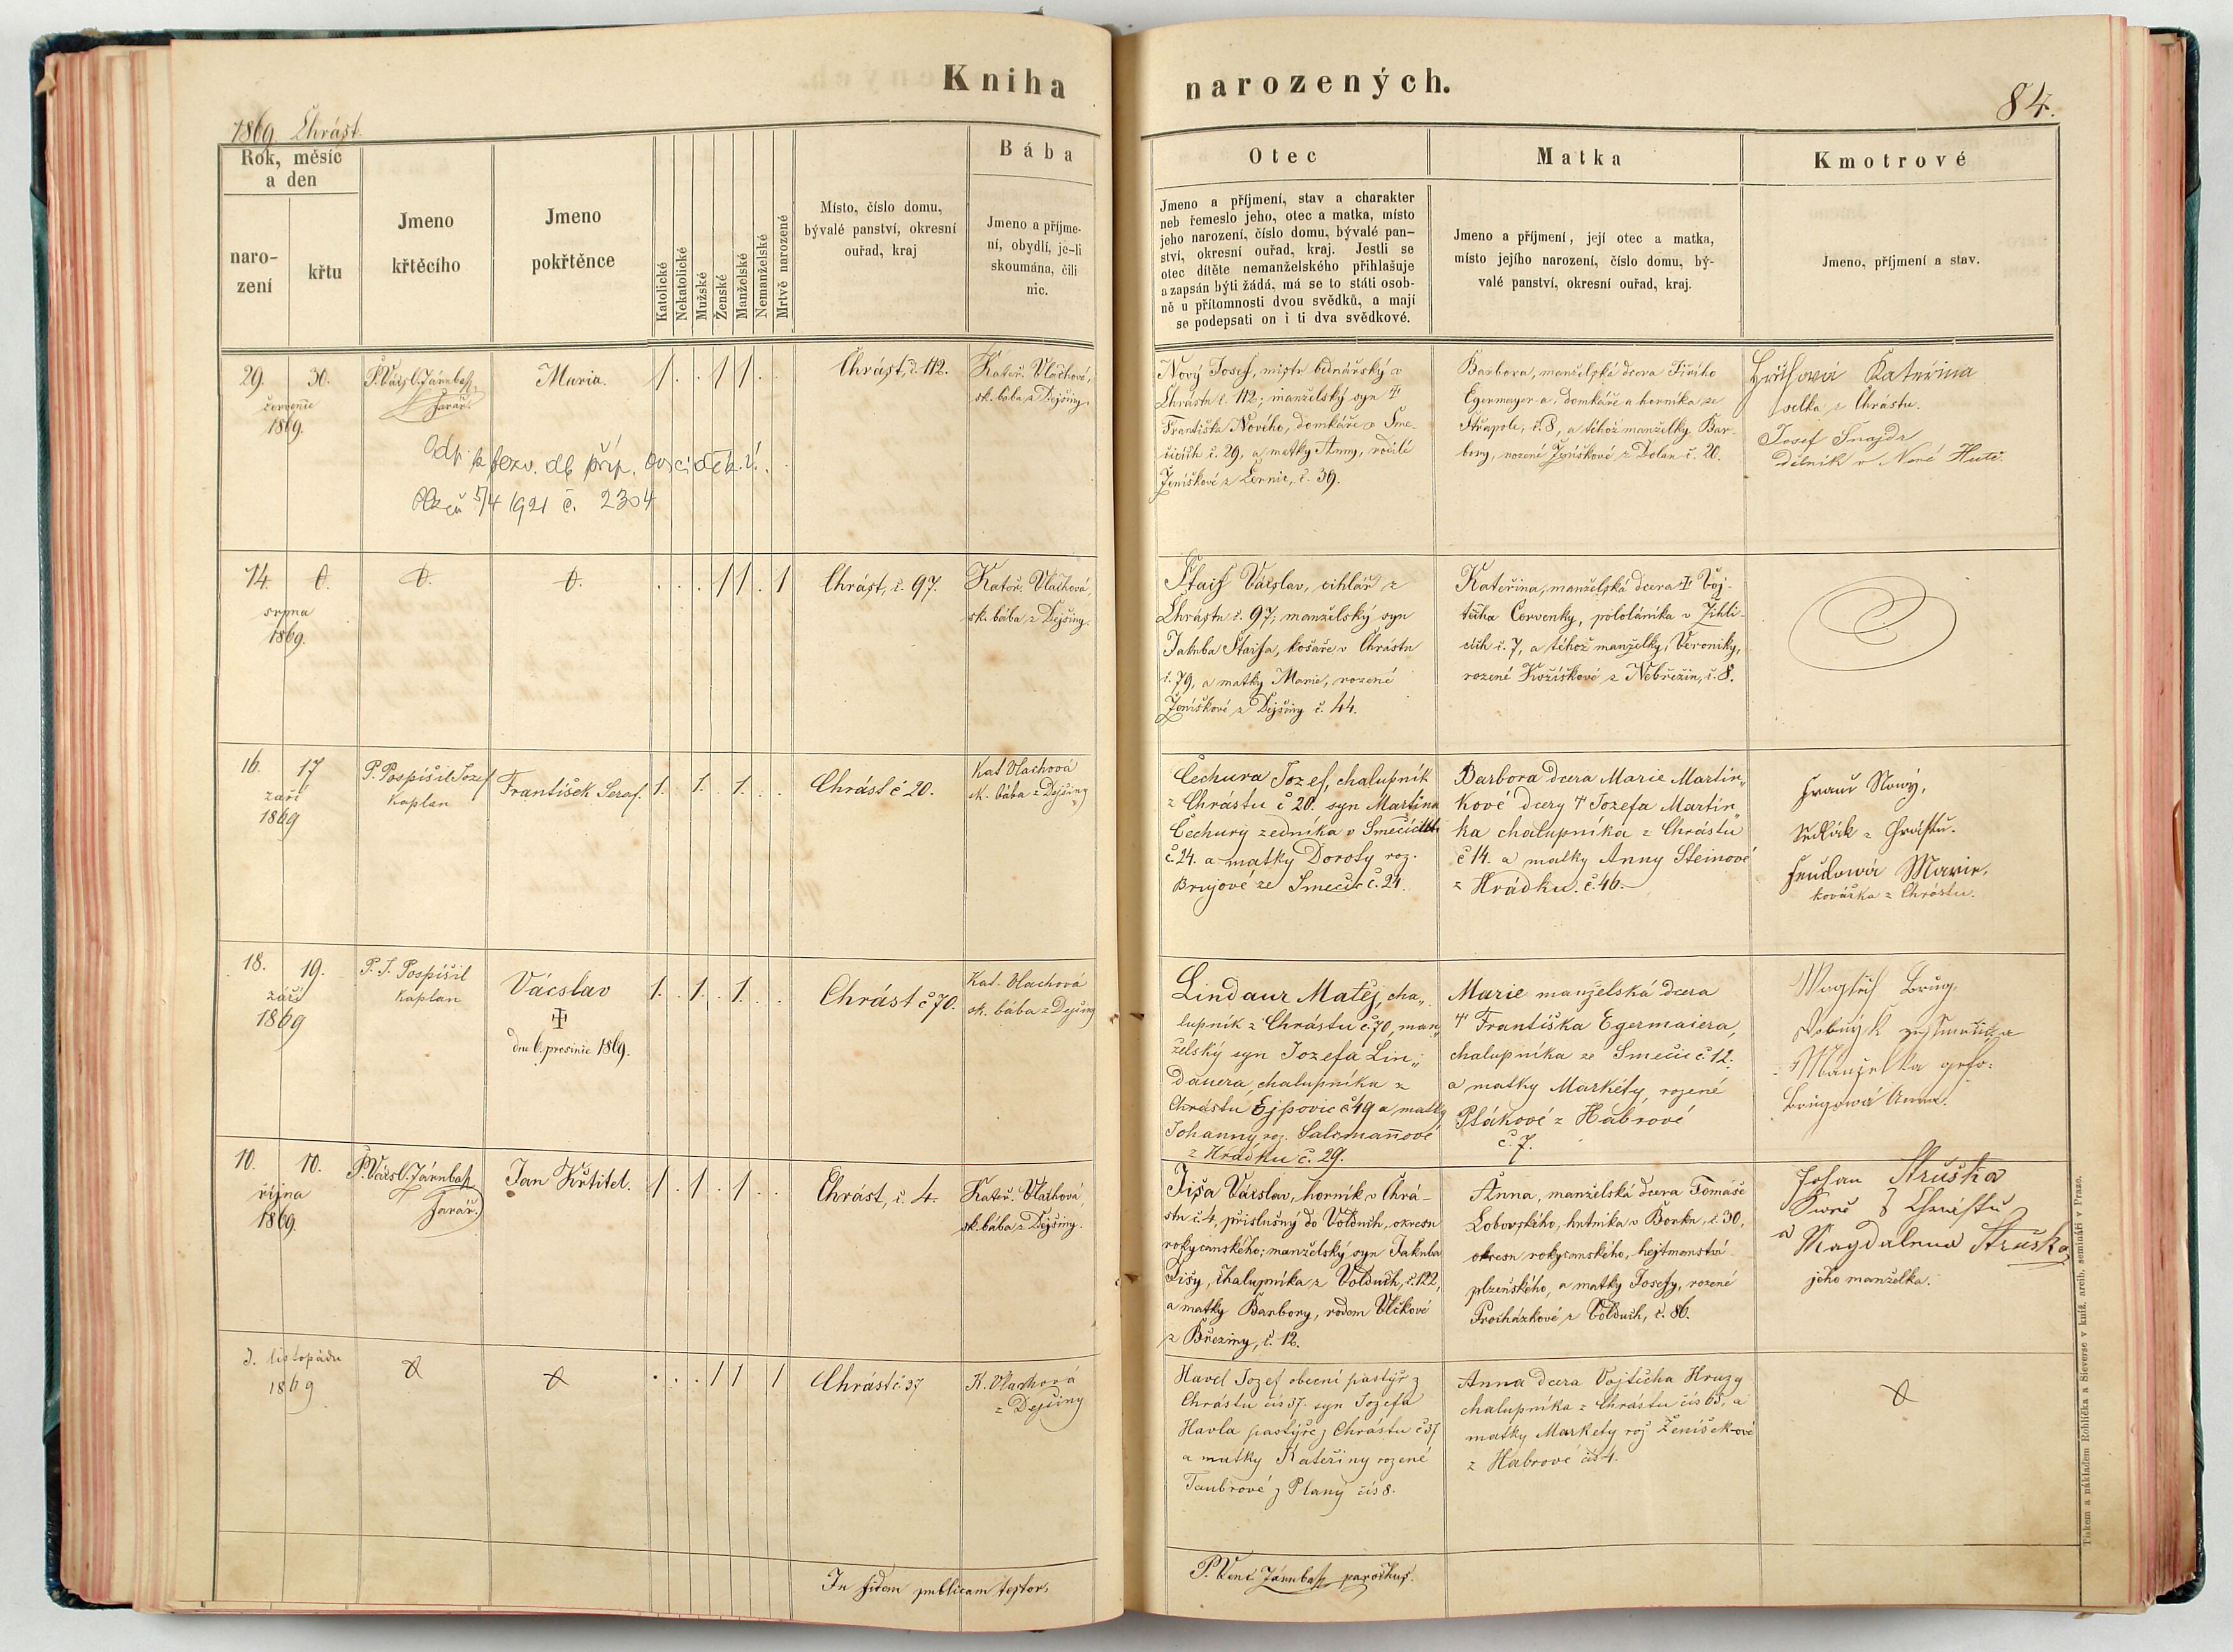 Kniha narozených.
1869 Chrást.
84.
Rok, měsíc
a den
naro-
zení
křtu
Jmeno
křtěcího
Jmeno
pokřtěnce
Katolické
Nekatolické
Mužské
Ženské
Manželské
Nemanželské
Mrtvě narozené
Místo, číslo domu,
bývalé panství, okresní
ouřad, kraj
Bába
Jmeno a příjme-
ní, obydlí, je-li
skoumána, čili
nic.
Otec
Jmeno a příjmení, stav a charakter
neb řemeslo jeho, otec a matka, místo
jeho narození, číslo domu, bývalé pan-
ství, okresní ouřad, kraj. Jestli se
otec dítěte nemanželského přihlašuje
a zapsán býti žádá, má se to státi osob-
ně u přítomnosti dvou svědků, a mají
se podepsati on i ti dva svědkové.
Matka
Jmeno a příjmení, její otec a matka,
místo jejího narození, číslo domu, bý-
valé panství, okresní ouřad, kraj.
Kmotrové
Jmeno, příjmení a stav.
29. 30.
července
1869.
P. Vácsl. Járnbah,
farář.
Maria.
1 . . 1 1 . .
Chrást, č. 112.
Kateř. Vlachová,
sk. bába z Dejšiny.
5/4 1921 č. 2304
Nový Josef, mistr bednářský v
Chrástu č. 112; manželský syn †
Františka Nového, domkáře v Sme-
čicích č. 29, a matky Anny, rodilé
Ženíškové z Černic, č. 39.
Barbora, manželská dcera Jiřího
Egermayer-a, domkáře a horníka ze
Střapole, č. 8, a téhož manželky Bar-
bory, rozené Ženíškové z Dolan č. 20.
Kateřina
selka z Chrástu.
Josef Šnajdr
dělník v Nové Huti.
14. 0.
srpna
1869.
0.
0.
. . . 1 1 . 1
Chrást, č. 97.
Kateř. Vlachová,
sk. bába z Dejšiny.
Štaif Vácslav, cihlář z
Chrástu č. 97; manželský syn
Jakuba Štaifa, košaře v Chrástu
č. 79, a matky Marie, rozené
Ženíškové z Dejšiny č. 44.
Kateřina, manželská dcera † Voj-
těcha Červenky, pololáníka v Žihli-
cích č. 7, a téhož manželky, Veroniky,
rozené Kožíškové z Nebřezin, č. 8.
16. 17
září
1869
P. Pospíšil Jozef
kaplan
František Seraf.
1. . 1. . 1. . .
Chrást č 20.
Kat Vlachová
sk. bába z Dejšiny
Čechura Jozef, chalupník
z Chrástu č 20. syn Martina
Čechury zedníka v Smečicích
č. 24. a matky Doroty roz.
Brujové ze Smečic č. 24.
Barbora dcera Marie Martin„
kové dcery † Jozefa Martin„
ka chalupníka z Chrástu
č 14. a matky Anny Steinové
z Hrádku. č. 46.
Franz Nowý,
Sedlák z Chrástu.
Marie,
kovářka z Chrástu.
18. 19.
září
1869
P. J. Pospíšil
kaplan
Vácslav
†
dne 6. prosince 1869.
1. . 1. . 1. . .
Chrást č 70.
Kat. Vlachová
sk. bába z Dejšiny
Lindaur Matěj, cha„
lupník z Chrástu č. 70, man„
želský syn Jozefa Lin„
dauera, chalupníka z
Chrástu Ejpovic č 49 a matky
Johanny roz. Salcmannové
z Hrádku č. 29.
Marie manželská dcera
† Františka Egermaiera,
chalupníka ze Smečic č 12.
a matky Markéty, rozené
Ptákové z Habrové
č. 7.
Anna.
10. 10.
října
1869.
P. Vácsl. Járnbah,
farář.
Jan Křtitel.
1 . 1 . 1 . .
Chrást, č. 4.
Kateř. Vlachová,
sk. bába z Dejšiny.
Jiša Vácslav, horník v Chrá-
stu č. 4, příslušný do Volduch, okresu
rokycanského; manželský syn Jakuba
Jišy, chalupníka z Volduch, č. 122,
a matky Barbory, rodem Vlčkové
z Březiny, č. 12.
Anna, manželská dcera Tomáše
Lobovského, hutníka v Borku, č. 30,
okresu rokycanského, hejtmanství
plzeňského, a matky Josefy, rozené
Procházkové z Volduch, č. 86.
Johan Struska
z Chrástu
a Magdalena Struska
jeho manželka.
3. listopádu
1869
0
0
. . . 1 1 1
Chrást č. 37
K. Vlachová
z Dejšiny
Havel Jozef obecní pastýř z
Chrástu čís 37. syn Jozefa
Havla pastýře z Chrástu č 37
a matky Kateřiny rozené
Taubrové z Plany čís 8.
Anna dcera Vojtěcha Hruzy
chalupníka z Chrástu čís 65, a
matky Markety roz Ženíšek-ové
z Habrové čís 4.
0
In fidem publicam testor,
P. Venc. Járnbah, parochus.
Tiskem a nákladem Rohlíčka a Sieverse v kníž. arcib. semináři v Praze.